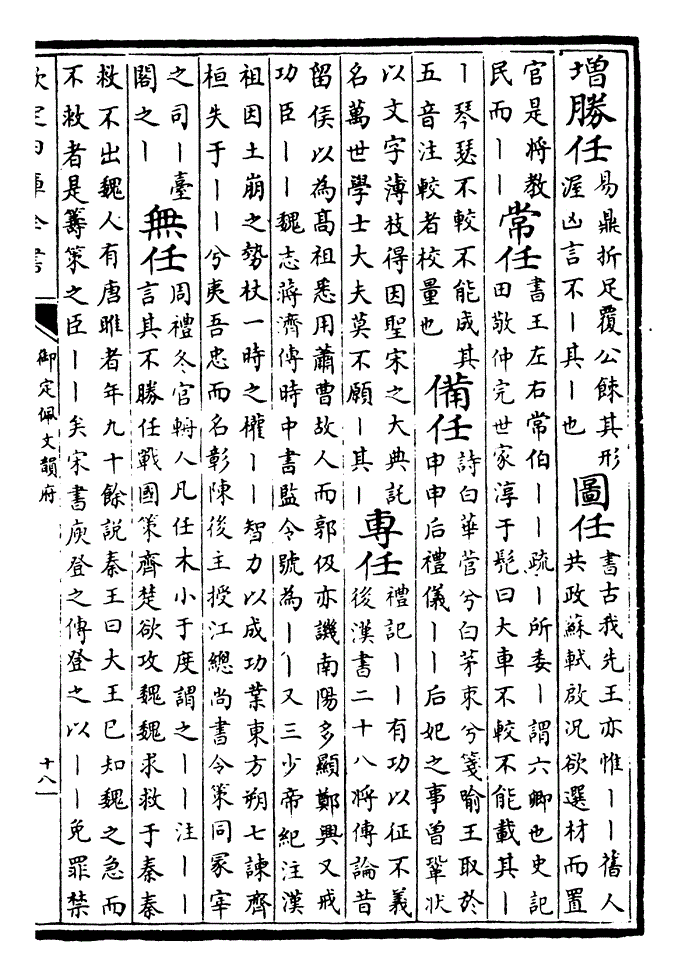 增勝任
易鼎折足覆公餗其形
渥凶言不丨其丨也
圖任
書古我先王亦惟丨丨舊人
共政蘇軾啟况欲選材而置
官是將教
民而丨丨
常任
書王左右常伯丨丨疏丨所委丨謂六卿也史記
田敬仲完世家淳于髡曰大車不較不能載其丨
丨琴瑟不較不能成其
五音注較者校量也
備任
詩白華菅兮白茅束兮箋喻王取於
申申后禮儀丨丨后妃之事曾鞏狀
以文字薄技得因聖宋之大典託
名萬世學士大夫莫不願丨其丨
專任
禮記丨丨有功以征不義
後漢書二十八將傳論昔
留侯以為高祖悉用蕭曹故人而郭伋亦譏南陽多顯鄭興又戒
功臣丨丨魏志蔣濟傳時中書監令號為丨丨又三少帝紀注漢
祖因土崩之勢杖一時之權丨丨智力以成功業東方朔七諫齊
桓失于丨丨兮夷吾忠而名彰陳後主授江總尚書令策同冢宰
之司丨臺
閣之丨
無任
周禮冬官輈人凡任木小于度謂之丨丨注丨丨
言其不勝任戰國策齊楚欲攻魏魏求救于秦秦
救不出魏人有唐雎者年九十餘說秦王曰大王已知魏之急而
不救者是籌策之臣丨丨矣宋書庾登之傳登之以丨丨免罪禁
欽定四庫全書
御定佩文韻府
十八